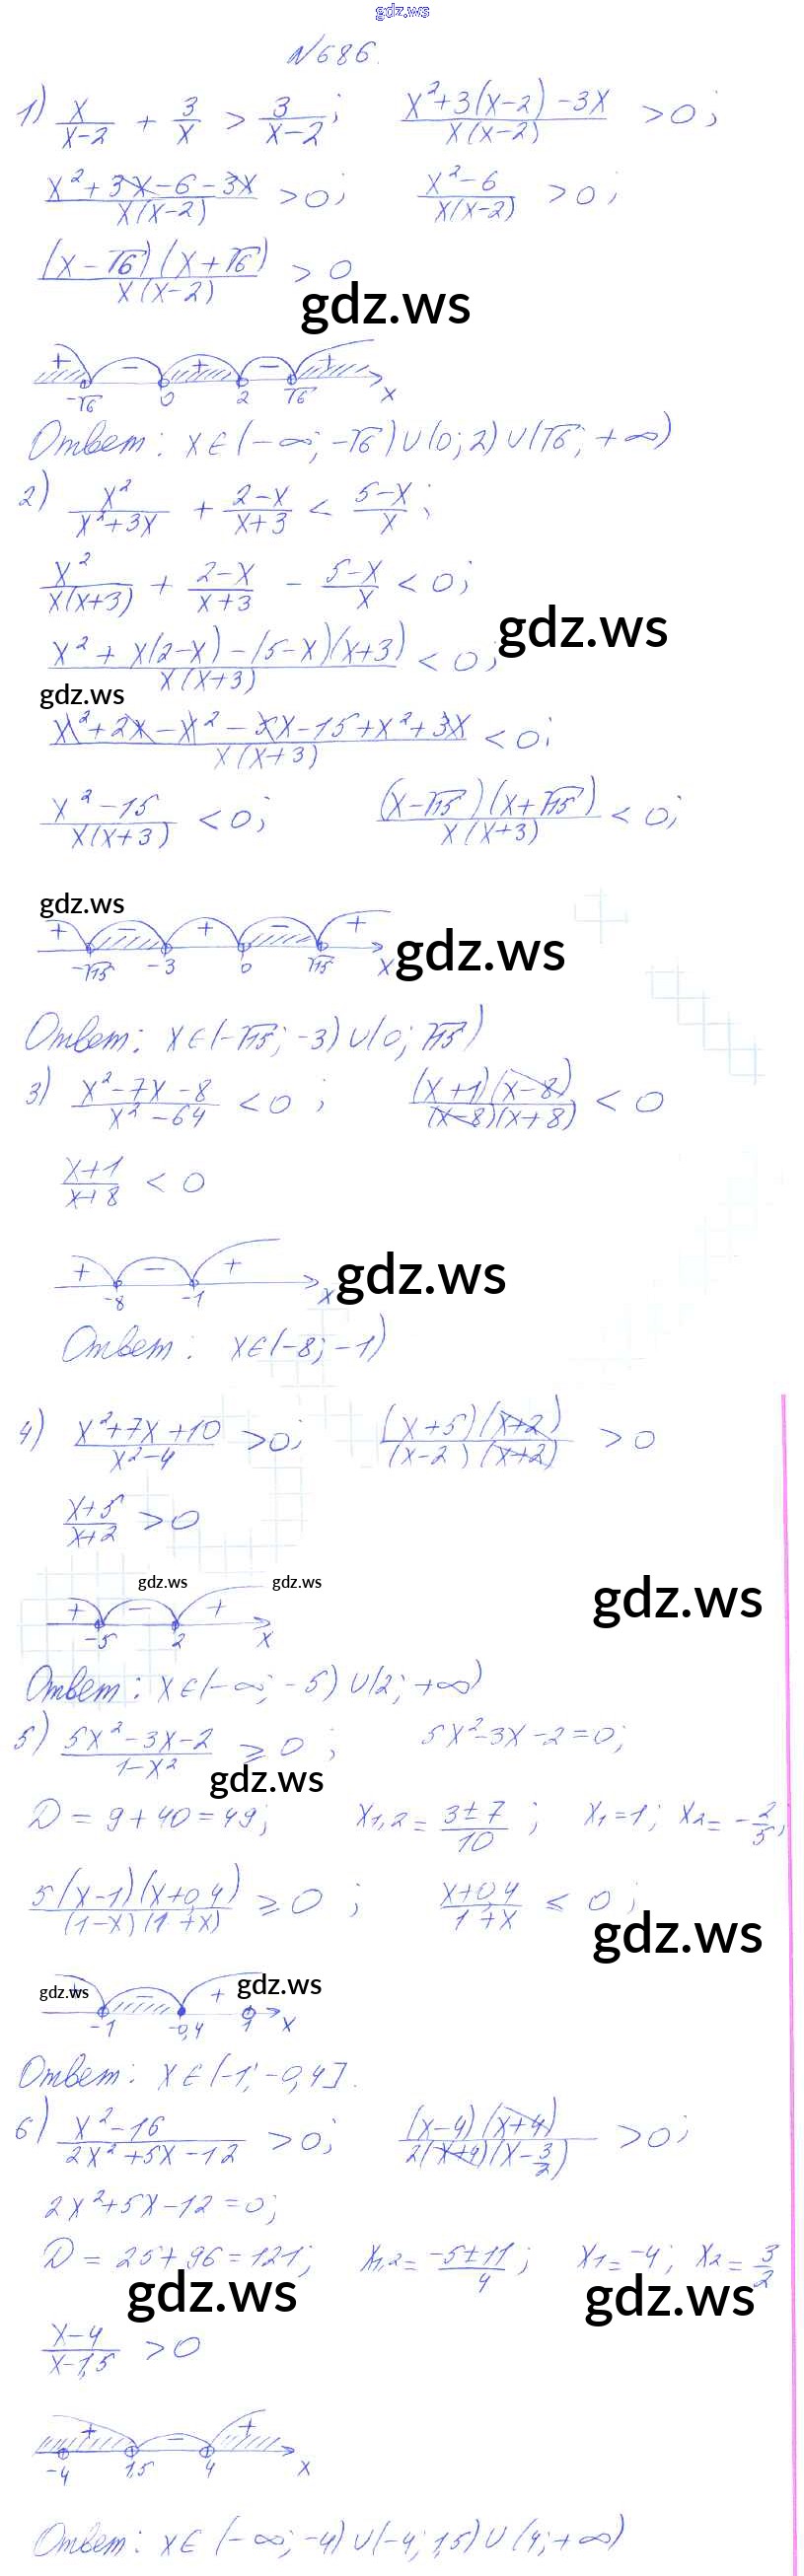 gdz.ws
№686.
1) x/(x-2) + 3/x > 3/(x-2); (x²+3(x-2)-3x)/(x(x-2)) >0;
(x²+3x-6-3x)/(x(x-2)) >0; (x²-6)/(x(x-2)) >0;
((x-√6)(x+√6))/(x(x-2)) > 0
gdz.ws
+ - + - +
-√6 0 2 √6 x
Ответ: x∈(-∞; -√6)∪(0; 2)∪(√6; +∞)
2) x²/(x²+3x) + (2-x)/(x+3) < (5-x)/x;
x²/(x(x+3)) + (2-x)/(x+3) - (5-x)/x < 0;
(x²+x(2-x)-(5-x)(x+3))/(x(x+3)) < 0;
gdz.ws
gdz.ws
(x²+2x-x²-5x-15+x²+3x)/(x(x+3)) < 0;
(x²-15)/(x(x+3)) < 0; ((x-√15)(x+√15))/(x(x+3)) < 0;
gdz.ws
+ - + - +
-√15 -3 0 √15 x
gdz.ws
Ответ: x∈(-√15; -3)∪(0; √15)
3) (x²-7x-8)/(x²-64) <0; ((x+1)(x-8))/((x-8)(x+8)) < 0
(x+1)/(x+8) < 0
+ - +
-8 -1 x
gdz.ws
Ответ: x∈(-8; -1)
4) (x²+7x+10)/(x²-4) >0; ((x+5)(x+2))/((x-2)(x+2)) > 0
(x+5)/(x+2) >0
gdz.ws gdz.ws
gdz.ws
+ - +
-5 2 x
Ответ: x∈(-∞; -5)∪(2; +∞)
5) (5x²-3x-2)/(1-x²) ≥ 0; 5x²-3x-2=0;
gdz.ws
D = 9+40=49; x1,2 = (3±7)/10; x1=1; x2= -2/5;
(5(x-1)(x+0,4))/((1-x)(1+x)) ≥ 0; (x+0,4)/(1+x) ≤ 0;
gdz.ws
gdz.ws gdz.ws
+ - +
-1 -0,4 1 x
Ответ: x∈(-1; -0,4].
6) (x²-16)/(2x²+5x-12) >0; ((x-4)(x+4))/(2(x+4)(x-3/2)) >0;
2x²+5x-12=0;
D = 25+96=121; x1,2= (-5±11)/4; x1=-4; x2= 3/2
gdz.ws gdz.ws
(x-4)/(x-1,5) >0
+ - +
-4 1,5 4 x
Ответ: x∈(-∞; -4)∪(-4; 1,5)∪(4; +∞)